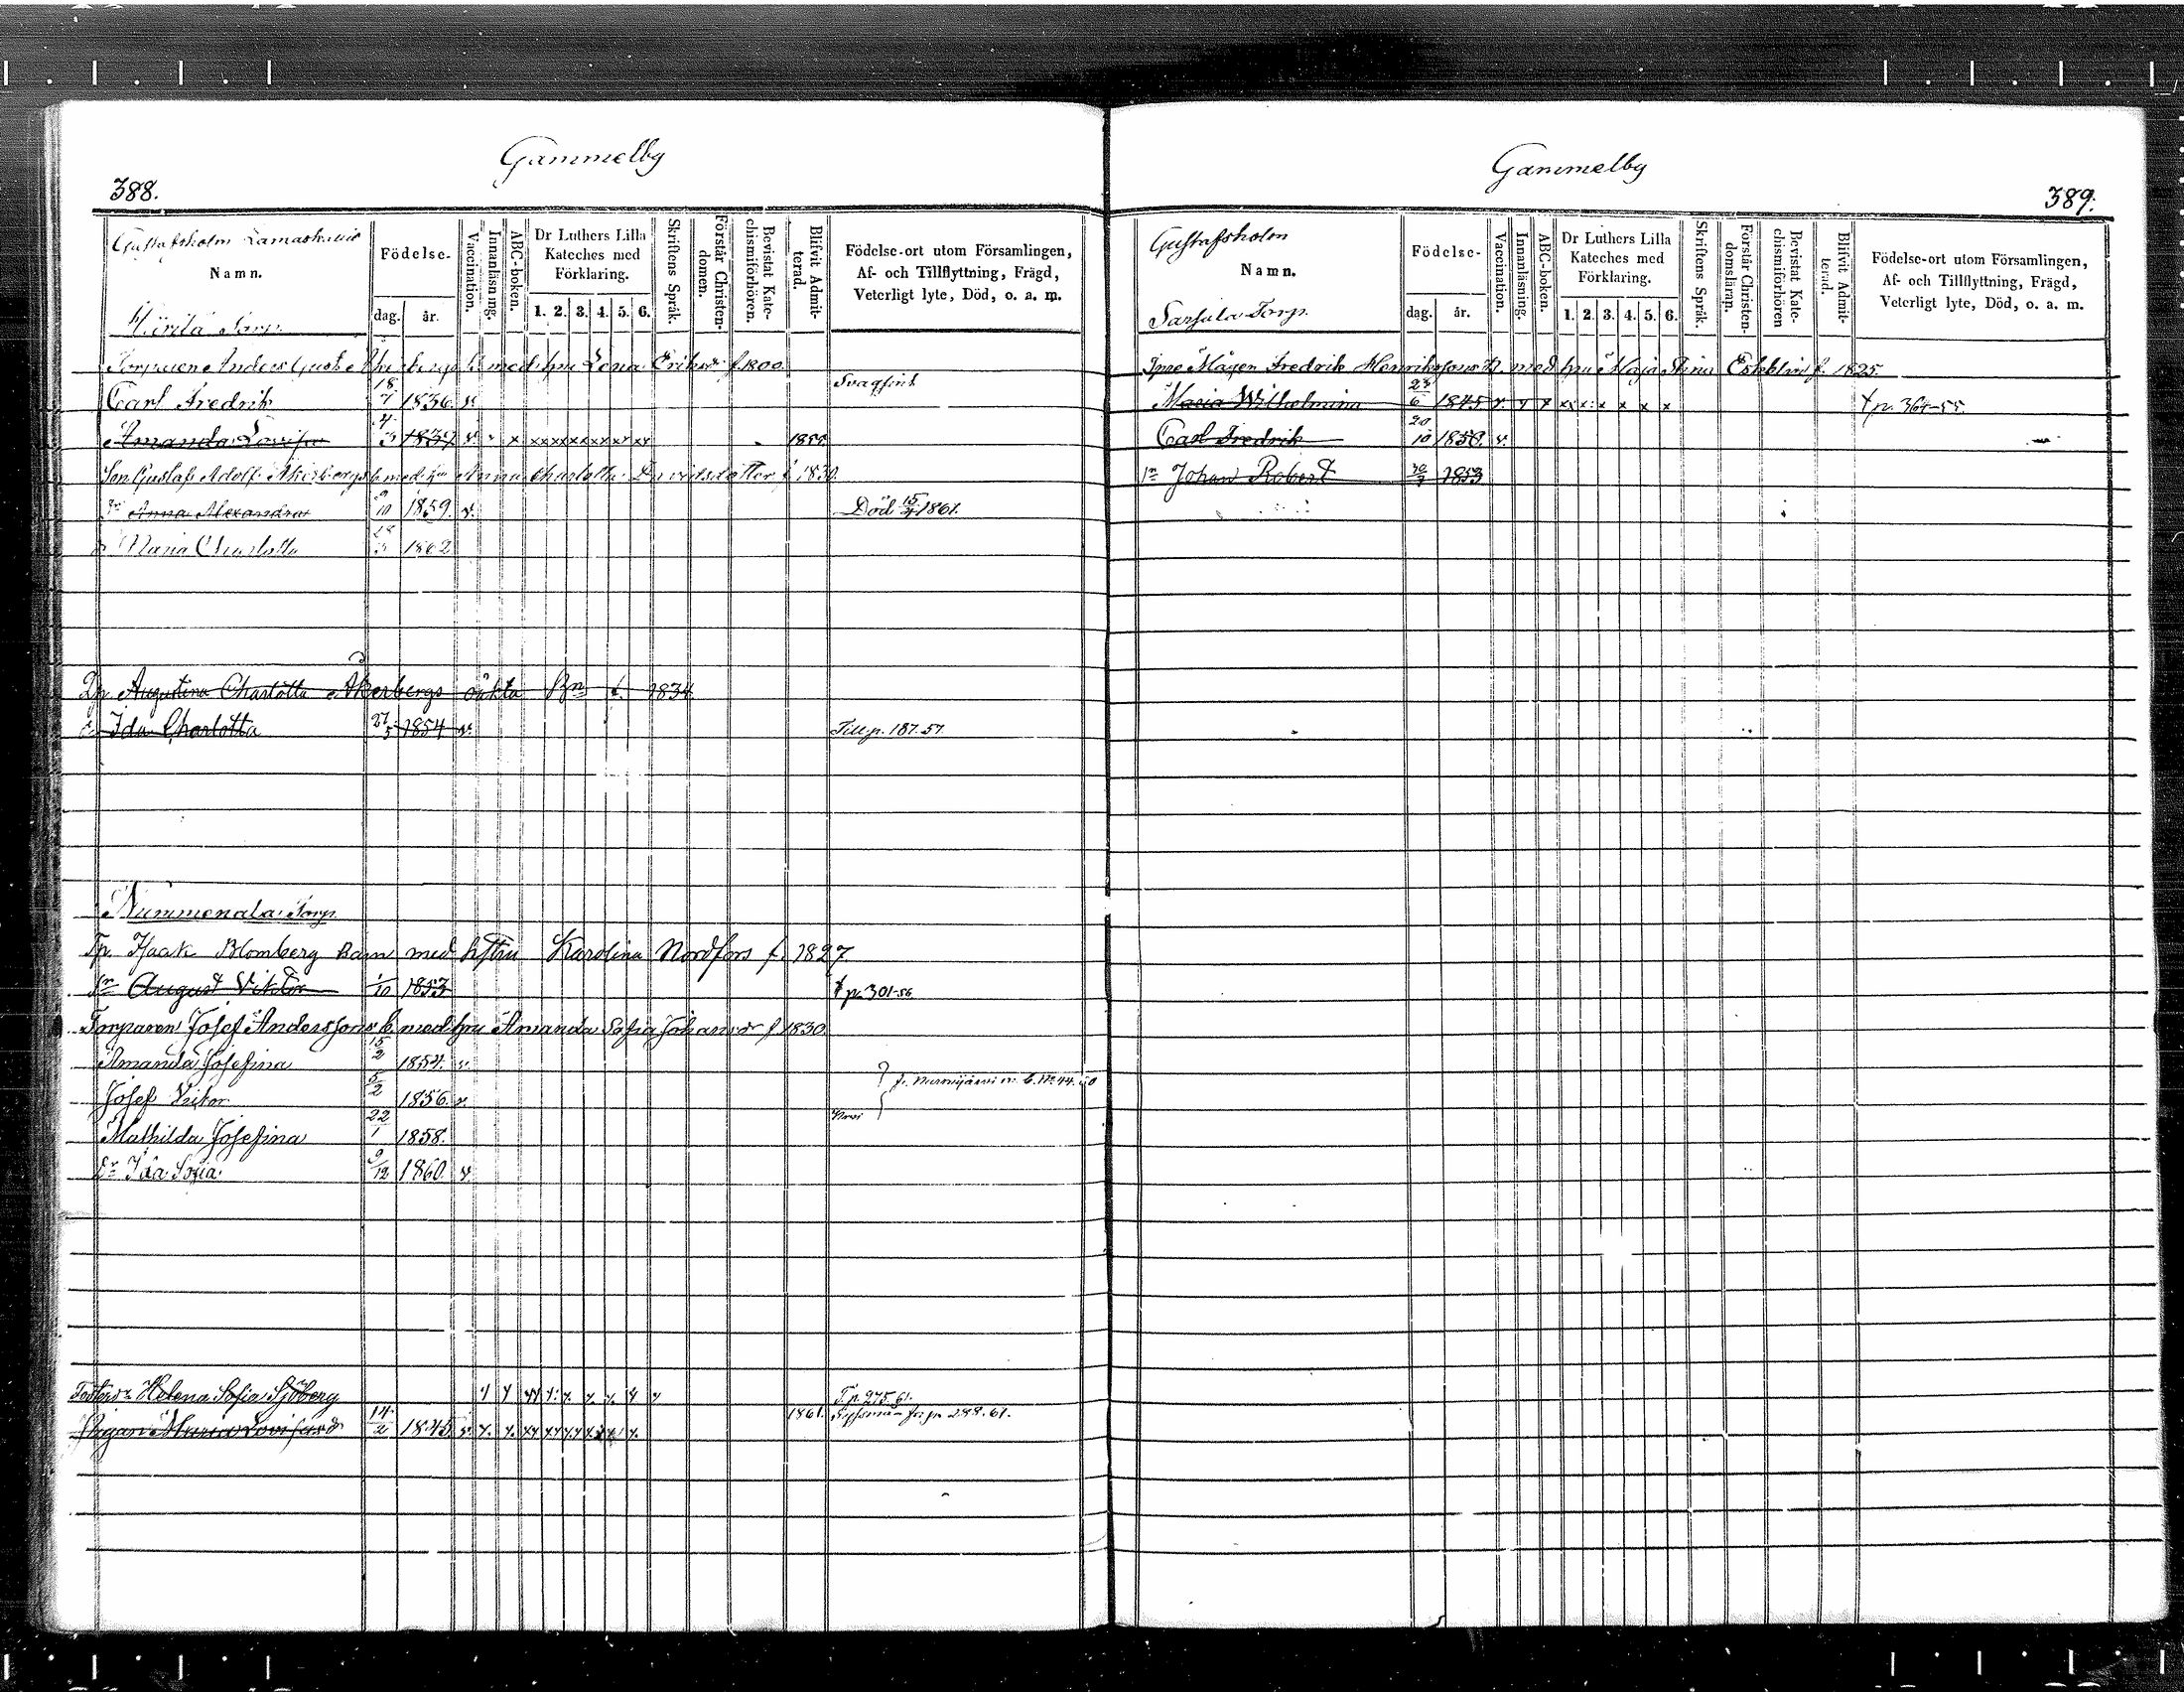 Gammelby
388.
Gustafsholm
Namn.
Födelse-
dag. år.
Vaccination.
Innanläsning.
ABC-boken.
Dr Luthers Lilla
Kateches med
Förklaring.
1. 2. 3. 4. 5. 6.
Skriftens Språk.
Förstår Christen-
domen.
Bevistat Kate-
chismiförhören.
Blifvit Admit-
terad.
Födelse-ort utom Församlingen,
Af- och Tillflyttning, Frägd,
Veterligt lyte, Död, o. a. m.
Torp.
Torparen Anders Gust. Åkerbergs b. med hru Lena Eriksdr f. 1800.
Carl Fredrik 18/7 1836. v. Svagsint
Amanda Lovisa 4/3 1839 v. x xx xx xx xx xx xx 1855.
Son Gustaf Adolf Åkerbergs b. med hru Anna Charlotta Davidsdotter f. 1830.
Dr Anna Alexandra 9/10 1859. v. Död 15/4 1861.
Dr Maria Charlotta 28/3 1862
Dp. Augustina Charlotta Åkerbergs oäkta Bn f. 1834
Dr Ida Charlotta 27/5 1854 v. Till p. 187.57
Nummenala Torp.
Tp. Isaak Blomberg Barn med hustru Karolina Nordfors f. 1827
Sn August Viktor 1/10 1853 T p. 301-56
Torparen Josef Anderssons b. med hru Amanda Sofia Johansdr f 1830.
Amanda Josefina 15/2 1854. v.
Josef Viktor 5/2 1856. v. f. Nurmijärvi m. b. No 44. 60
Mathilda Josefina 22/1 1858.
Dr Ida Sofia 9/12 1860. v.
Fosterdr Helena Sofia Sjöberg T p. 275.61.
Pigan Maria Lovisa 14/2 1845 v. x. x. xx xx xx xx x. 1861. fr p. 288.61.
Gammelby
389.
Gustafsholm
Namn.
Födelse-
dag. år.
Vaccination.
Innanläsning.
ABC-boken.
Dr Luthers Lilla
Kateches med
Förklaring.
1. 2. 3. 4. 5. 6.
Skriftens Språk.
Förstår Christen-
domsläran.
Bevistat Kate-
chismiförhören
Blifvit Admit-
terad.
Födelse-ort utom Församlingen,
Af- och Tillflyttning, Frägd,
Veterligt lyte, Död, o. a. m.
Torp.
Mågen Fredrik Henrikssons b. med hru Maja Stina f. 1825.
Maria Wilhelmina 23/6 1845 v. x x xx x x x x x T p. 364-55
Carl Fredrik 20/10 1850. v.
Sn Johan Robert 1853